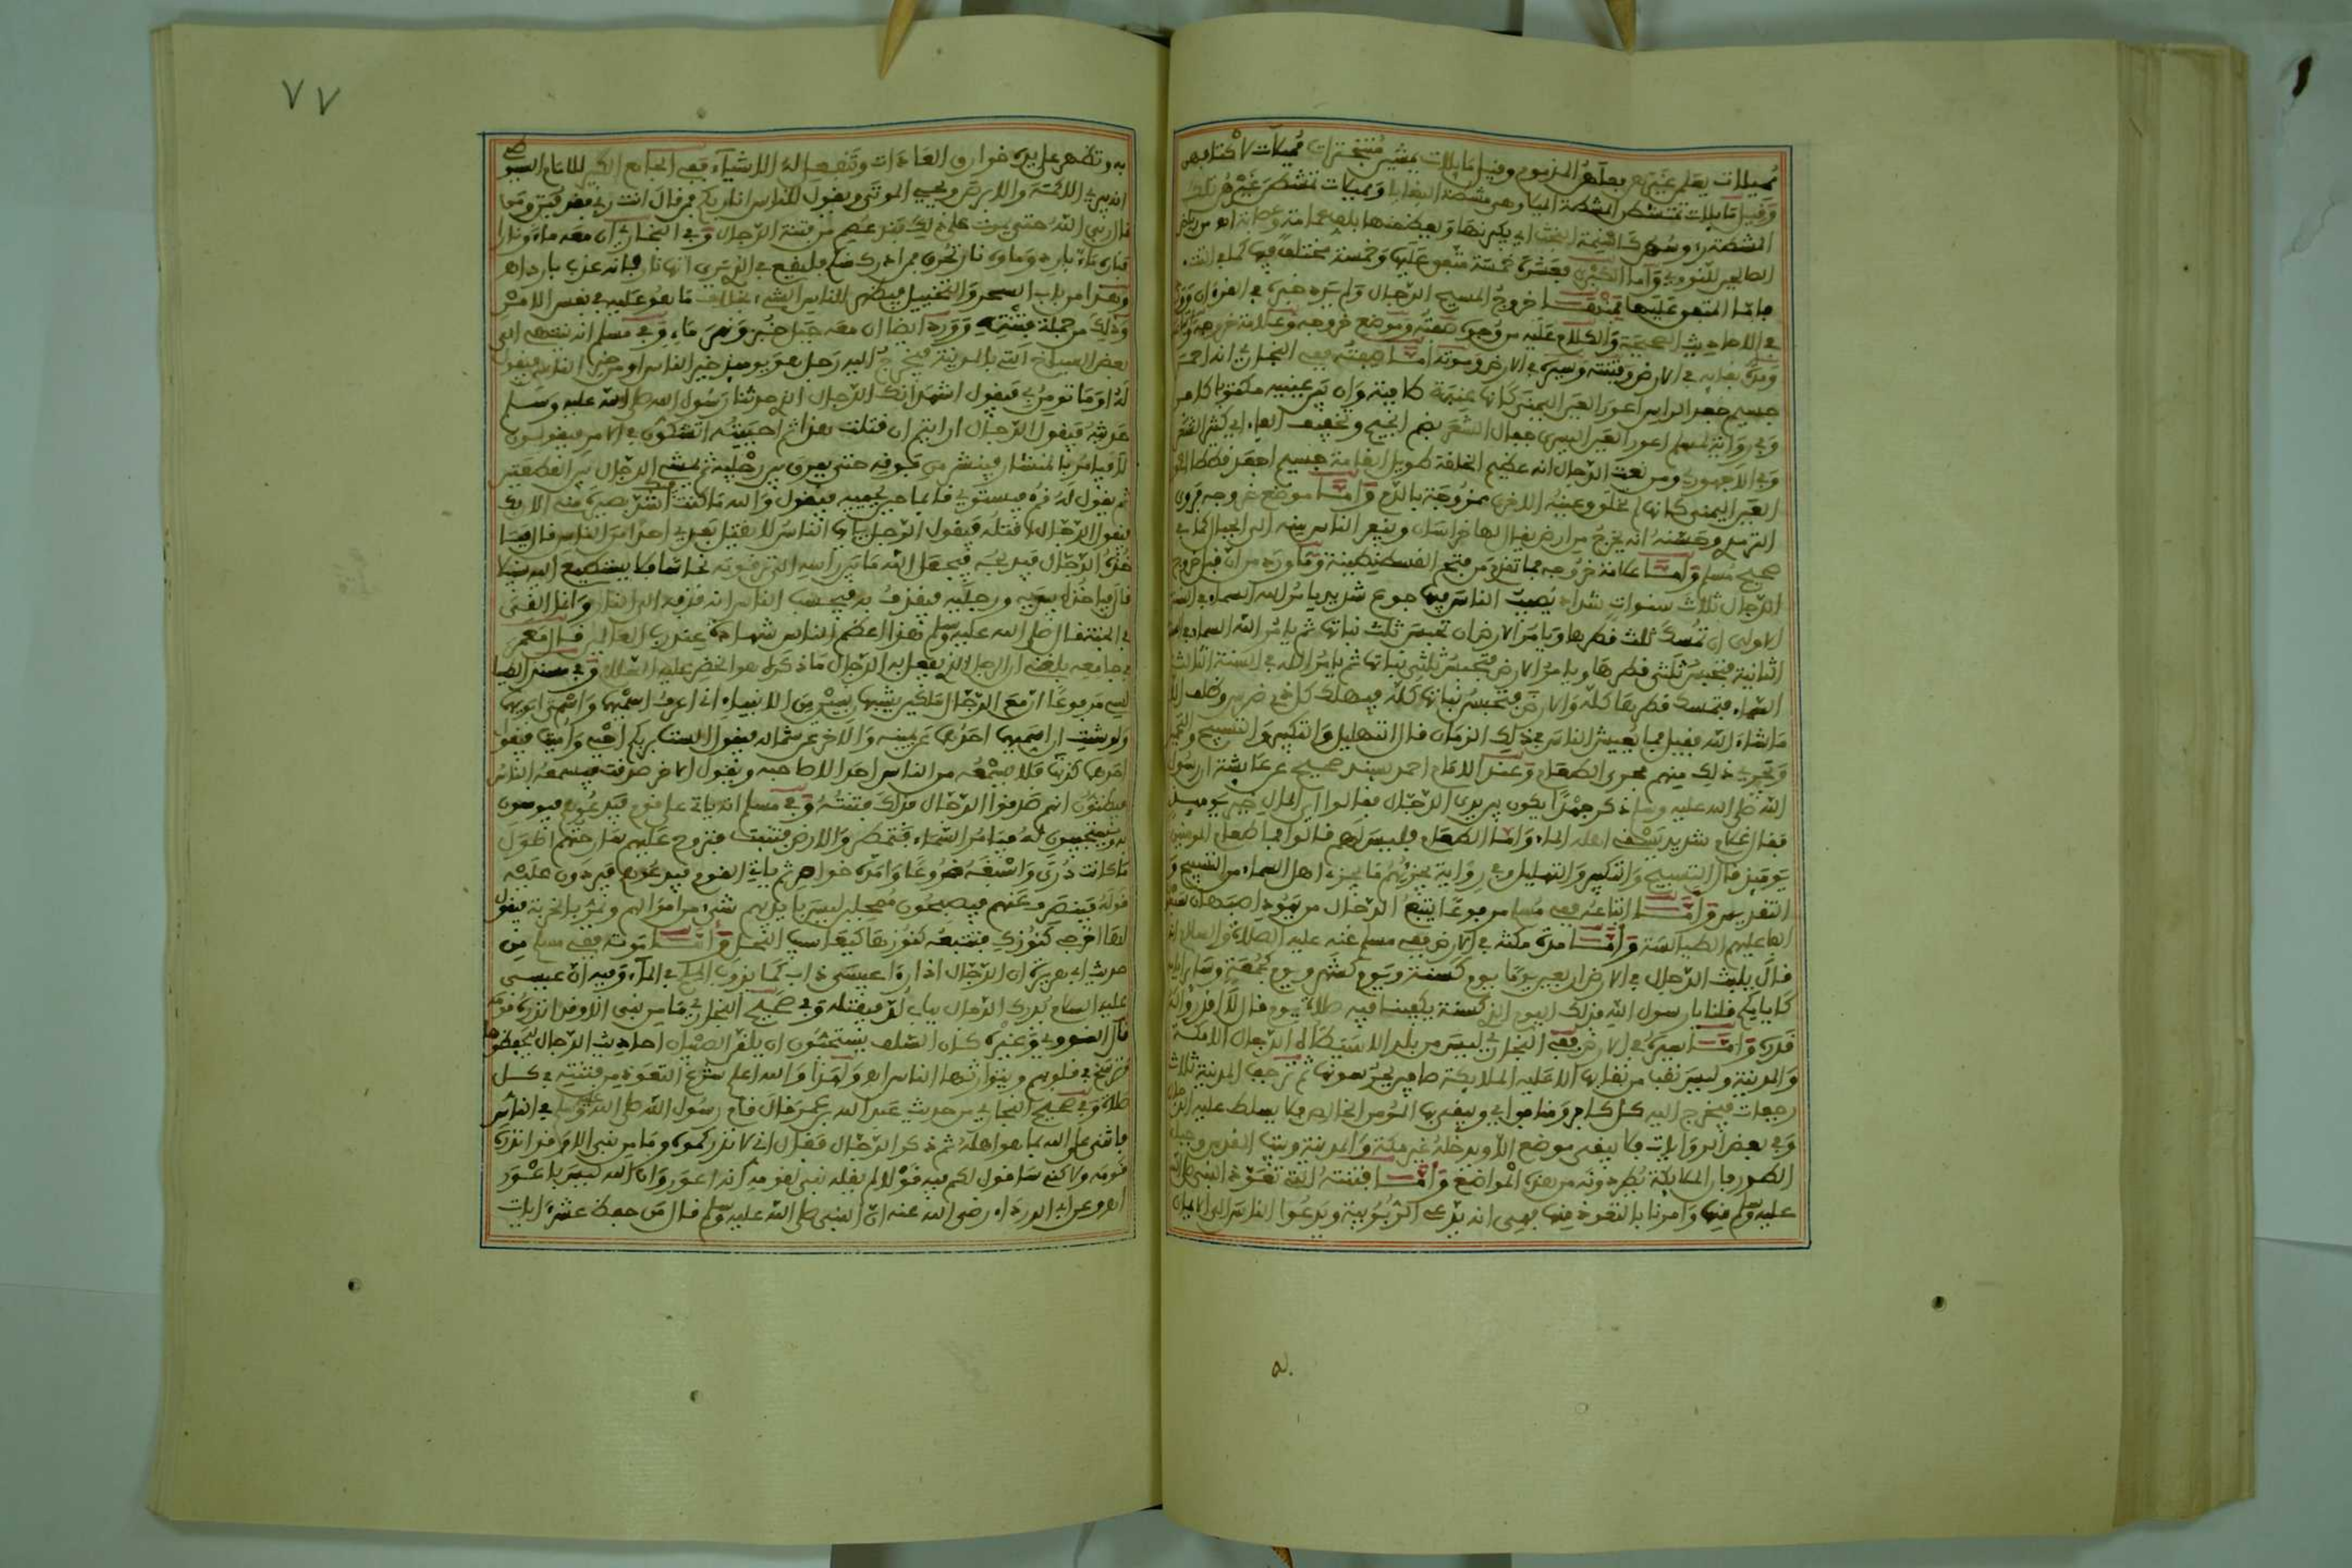 مميلات يعلمن غيرهن بعلهن المذموم وقيل مايلات بمشيهن متبخترات مميلات لاكتابهن
وقيل مايلات تمتشطن المشطة الميلا وهي مشطة البغايا ومميلات تمشطن غيرهن تلك
المشطة رءوسهن كاسنمة البخت اي يكبرنها ويعظمنها بلف عمامة وعصابة اه من رياض
الصالحين للنووي واما الكبرى فعشرة خمسة متفق عليها وخمسة مختلف فيها
فاما المتفق عليها فمنها خروج المسيح الدجال ولم يرد خبره في القرءان وورد
في الاحاديث الصحيحة والكلام عليه من وجوه صفته وموضع خروجه وعلامة خروجه
ومدة بقايه في الارض وفتنته وسيره في الارض وموته اما صفته ففي البخاري انه احمر
جسيم جعد الراس اعور العين اليمنى كانها عنبة طافية وان بين عينيه مكتوبا كافر
وفي رواية لمسلم اعور العين اليسرى جفال الشعر بضم الجيم وتخفيف الفاء اي كثير الشعر
وفي الاجهوري ومن نعت الدجال انه عظيم الخلقة طويل القامة جسيم اجعد قطط
العين اليمنى كانها لم تخلق وعينه الاخرى ممزوجة بالدم واما موضع خروجه فروى
الترمذي وحسنه انه يخرج من ارض يقال لها خراسان ويفر الناس منه الى الجبال كما في
صحيح مسلم واما علامة خروجه فما تقدم من فتح القسطنطينية وما ورد من ان قبل خروج
الدجال ثلاث سنوات شداد يصيب الناس فيها جوع شديد يامر الله السماء في السنة
الاولى ان تمسك ثلث قطرها ويامر الارض ان تحبس ثلث نباتها ثم يامر الله السماء في
الثانية فتحبس ثلثي قطرها ويامر الارض فتحبس ثلثي نباتها ثم يامر الله في السنة الثالثة
السماء فتمسك قطرها كله والارض فتحبس نباتها كله فيهلك كل ذي ضرس وظلف الا
ما شاء الله فقيل فما يعيش الناس في ذلك الزمان قال التهليل والتكبير والتسبيح والتحميد
ويجري ذلك منهم مجرى الطعام وعند الامام احمد بسند صحيح عن عايشة ان رسول
الله صلى الله عليه وسلم ذكر جهدا يكون بين يدي الدجال فقالوا اي المال خير يوميذ
فقال غلام شديد يسقي اهله الماء واما الطعام فليس لهم قالوا فما طعام المومنين
يوميذ قال التسبيح والتكبير والتهليل وفي رواية يجزيهم ما يجزي اهل السماء من التسبيح و
التقديس واما اتباعه ففي مسلم مرفوعا يتبع الدجال من يهود اصبهان سبعون
الفا عليهم الطيالسة واما مدة مكثه في الارض ففي مسلم عنه عليه الصلاة والسلام انه
قال يلبث الدجال في الارض اربعين يوما يوم كسنة ويوم كشهر ويوم كجمعة وساير ايامه
كايامكم قلنا يا رسول الله فذلك اليوم الذي كسنة يكفينا فيه صلاة يوم قال لا اقدروا له
قدره واما سيره في الارض ففي البخاري ليس من بلد الا سيطاه الدجال الا مكة
والمدينة وليس نقب من نقابها الا عليه الملايكة صافين يحرسونها ثم ترجف المدينة ثلاث
رجفات فيخرج اليه كل كافر ومنافق ويبقى بها المومن الخالص فلا يسلط عليه الدجال
وفي بعض الروايات فلا يبقى موضع الا ويدخله غير مكة والمدينة وبيت المقدس وجبل
الطور فان الملايكة تطرده عن هذه المواضع واما فتنته التي تعوذ النبي صلى الله
عليه وسلم منها وامرنا بالتعوذ منها فهي انه يدعي الربوبية ويدعوا الناس الى الايمان
٧٧
به وتظهر على يديه خوارق العادات وتنفعل له الاشياء ففي الجامع الكبير للامام السيوطي
انه يبرئ الاكمه والابرص ويحيي الموتى ويقول للناس انا ربكم فمن قال انت ربي فقد فتن ومن
قال ربي الله حتى يموت على ذلك فقد عصم من فتنة الدجال وفي البخاري ان معه ماء ونارا
فناره ماء بارد وماءه نار تحرق فمن ادرك ذلك فليقع في الذي يرى انها نار فانه عذب بارد اه
وهذا من باب السحر والتخييل فيظهر للناس الشيء بخلاف ما هو عليه في نفس الامر
وذلك من جملة فتنته وورد ايضا ان معه جبل خبز ونهر ماء وفي مسلم انه ينتهي الى
بعض السباخ التي بالمدينة فيخرج اليه رجل هو يوميذ خير الناس او من خير الناس فيقول
له او ما تومن بي فيقول اشهد انك الدجال الذي حدثنا رسول الله صلى الله عليه وسلم
حديثه فيقول الدجال ارايتم ان قتلت هذا ثم احييته اتشكون في الامر فيقولون
لا فيامر بالمنشار فينشر من فرقه حتى يفرق بين رجليه ثم يمشي الدجال بين القطعتين
ثم يقول له قم فيستوي قايما حين يحييه فيقول والله ما كنت اشد بصيرة مني الان
فيقول الدجال اقتله فيقول الرجل يايها الناس لا يفعل بعدي احدا من الناس قال
فياخذه الدجال فيذبحه فيجعل الله ما بين راسه الى ترقوته نحاسا فلا يستطيع اليه سبيلا
قال فياخذ بيديه ورجليه فيقذف به فيحسب الناس انه قذفه الى النار وانما القي
في الجنة فقال صلى الله عليه وسلم هذا اعظم الناس شهادة عند رب العالمين قال معمر
في جامعه بلغني ان الرجل الذي يفعل به الدجال ما ذكر له هو الخضر عليه السلام وفي مسند الطيا
لسي مرفوعا ان مع الدجال ملكين يشبهان نبيين من الانبياء اني اعرف اسمهما واسمي ابويهما
ولو شئت ان اسميهما احدهما عن يمينه والاخر عن شماله فيقول الست بربكم احيي واميت فيقول
احدهما كذبت فلا يسمعه من الناس احد الا صاحبه ويقول الاخر صدقت فيسمعه الناس
فيظنون انهم صدقوا الدجال فذلك فتنته وفي مسلم انه ياتي على قوم فيدعوهم فيومنون
به ويستجيبون له فيامر السماء فتمطر والارض فتنبت فتروح عليهم سارحتهم اطول
ما كانت ذرى واشبعه ضروعا وامده خواصر ثم ياتي القوم فيدعوهم فيردون عليه
قوله فينصرف عنهم فيصبحون ممحلين ليس بايديهم شيء من اموالهم ويمر بالخربة فيقول
لها اخرجي كنوزك فتتبعه كنوزها كيعاسيب النحل واما موته ففي مسلم من
حديث ابي هريرة ان الدجال اذا راه عيسى ذاب كما يذوب الملح في الماء وفيه ان عيسى
عليه السلام يدرك الدجال بباب لد فيقتله وفي صحيح البخاري ما من نبي الا وقد انذره قومه
قال النووي وغيره كان السلف يستحبون ان يلقن الصبيان احاديث الدجال ليحفظوها
وترسخ في قلوبهم ويتوارثها الناس اه ولهذا والله اعلم شرع التعوذ من فتنته في كل
صلاة وفي صحيح البخاري من حديث عبد الله بن عمر قال قام رسول الله صلى الله عليه وسلم في الناس
فاثنى على الله بما هو اهله ثم ذكر الدجال فقال اني لانذركموه وما من نبي الا وقد انذره
قومه ولاكني ساقول لكم فيه قولا لم يقله نبي لقومه انه اعور وان الله ليس باعور
اه وعن ابي الدرداء رضي الله عنه ان النبي صلى الله عليه وسلم قال من حفظ عشر ايات